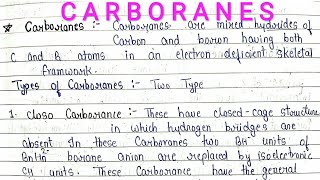 CARBORANES
* Carboranes :- Carboranes are mixed hydrides of
Carbon and boron having both
C and B atoms in an electron deficient skeletal
framwork.
Types of Carboranes :- Two Type
1- Closo Carborance :- These have closed-cage structure
in which hydrogen bridges are
absent In these Carboranes two BH⁻ units of
BnHn²⁻ borane anion are replaced by isoelectronic
CH units. These Carboranes have the general